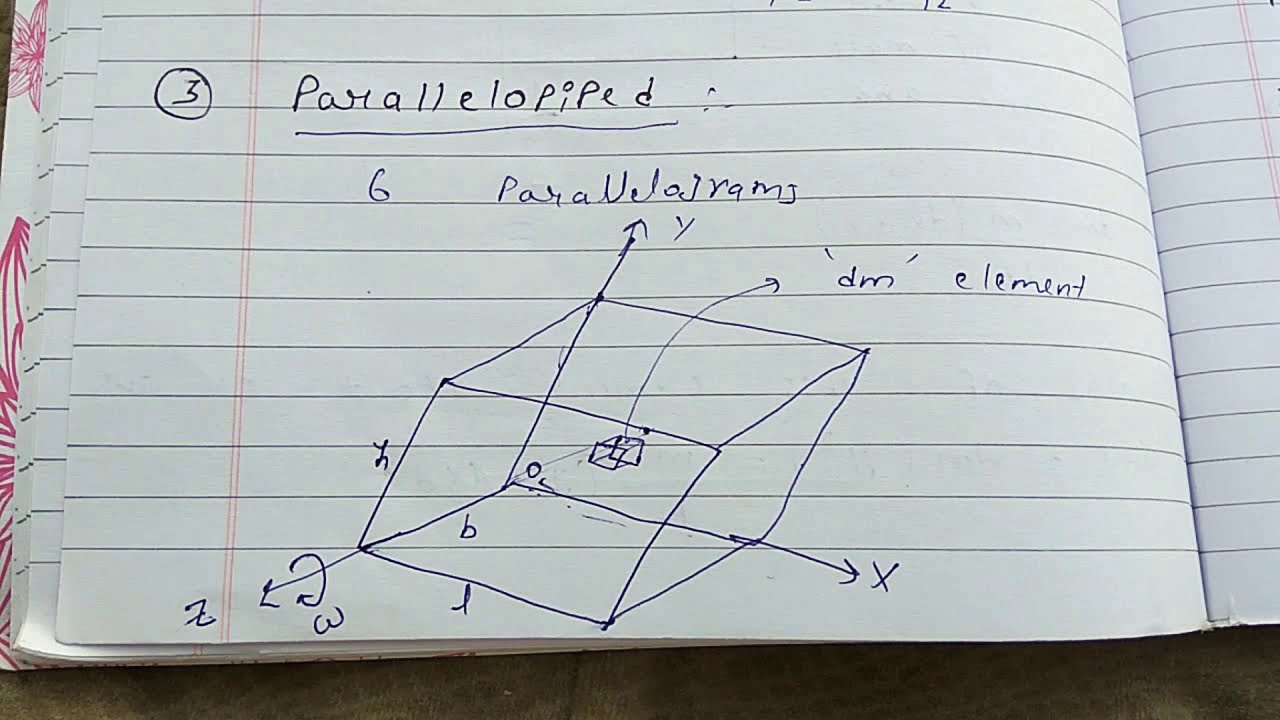 12
③ Parallelopiped :-
6 Parallelograms
Y
'dm' element
h
O
b
X
l
Z
ω